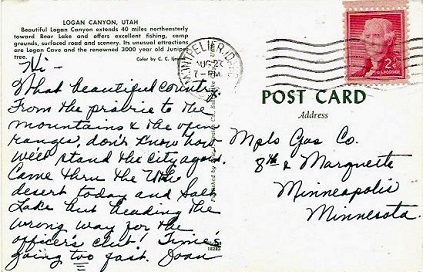 LOGAN CANYON, UTAH
Beautiful Logan Canyon extends 40 miles northeasterly
toward Bear Lake and offers excellent fishing, camp
grounds, surfaced road and scenery. Its unusual attractions
are Logan Cave and the renowned 3000 year old Juniper
tree.
Color by C. E.
Hi -
What beautiful country
From the prairie to the
mountains & the open
ranges, don't know how
we'll stand the city again.
Came thru the Utah
desert today and Salt
Lake but heading the
wrong way for the
officer's club! Time's
going too fast. Joan
MONTPELIER, ID
AUG 23
7-PM
2¢
POST CARD
Address
Mpls Gas Co.
8th & Marquette
Minneapolis
Minnesota.